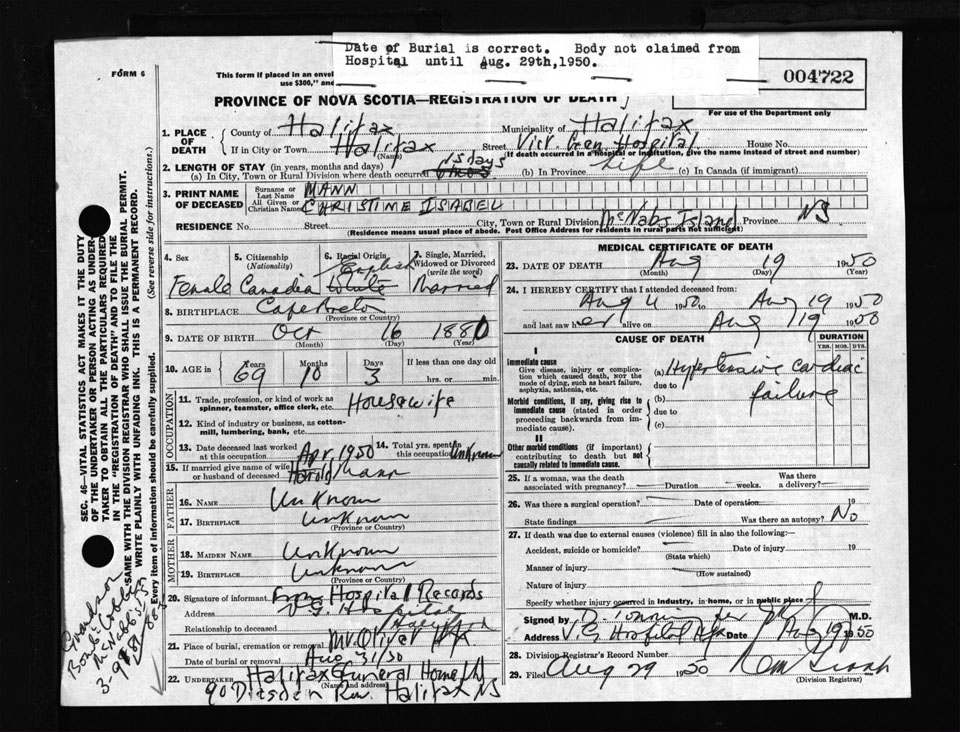 Date of Burial is correct. Body not claimed from
Hospital until Aug. 29th,1950.
FORM 6
This form if placed in an envel
use $300," and
004722
PROVINCE OF NOVA SCOTIA—REGISTRATION OF DEATH
For use of the Department only
1. PLACE OF DEATH
County of Halifax Municipality of Halifax
If in City or Town Halifax Street Vict. Gen. Hospital House No.
(Name) (If death occurred in a hospital or institution, give the name instead of street and number)
2. LENGTH OF STAY (in years, months and days)
(a) In City, Town or Rural Division where death occurred 15 days (b) In Province Life (c) In Canada (if immigrant)
3. PRINT NAME OF DECEASED
Surname or Last Name MANN
All Given or Christian Names CHRISTINE ISABEL
RESIDENCE No. Street City, Town or Rural Division McNabs Island Province NS
(Residence means usual place of abode. Post Office Address for residents in rural parts not sufficient)
4. Sex Female
5. Citizenship (Nationality) Canadia
6. Racial Origin English White
7. Single, Married, Widowed or Divorced (write the word) Married
8. BIRTHPLACE Cape Breton
(Province or Country)
9. DATE OF BIRTH Oct 16 1880
(Month) (Day) (Year)
10. AGE in Years Months Days If less than one day old
69 10 3 hrs. or min.
OCCUPATION
11. Trade, profession, or kind of work as spinner, teamster, office clerk, etc. Housewife
12. Kind of industry or business, as cotton-mill, lumbering, bank, etc.
13. Date deceased last worked at this occupation Apr. 1950
14. Total yrs. spent in this occupation Unknown
15. If married give name of wife or husband of deceased Harold Mann
FATHER
16. NAME Unknown
17. BIRTHPLACE Unknown
(Province or Country)
MOTHER
18. MAIDEN NAME Unknown
19. BIRTHPLACE Unknown
(Province or Country)
20. Signature of informant From Hospital Records
Address V. G. Hospital
Relationship to deceased Halifax
21. Place of burial, cremation or removal Mt. Olivet Hfx
Date of burial or removal Aug 31/50
22. UNDERTAKER Halifax Funeral Home
(Name and address)
90 Dresden Row. Halifax NS
MEDICAL CERTIFICATE OF DEATH
23. DATE OF DEATH Aug 19 1950
(Month) (Day) (Year)
24. I HEREBY CERTIFY that I attended deceased from:
Aug 4 1950 to Aug 19 1950
and last saw her alive on Aug 19 1950
CAUSE OF DEATH
DURATION
YRS. MOS. DYS.
I
Immediate cause
Give disease, injury or complication which caused death, NOT the mode of dying, such as heart failure, asphyxia, asthenia, etc.
(a) Hypertensive cardiac failure
due to
Morbid conditions, if any, giving rise to immediate cause (stated in order proceeding backwards from immediate cause).
(b)
due to
(c)
II
Other morbid conditions (if important) contributing to death but not causally related to immediate cause.
25. If a woman, was the death associated with pregnancy? Duration weeks. Was there a delivery?
26. Was there a surgical operation? Date of operation 19
State findings Was there an autopsy? No
27. If death was due to external causes (violence) fill in also the following:—
Accident, suicide or homicide? Date of injury 19
(State which)
Manner of injury
(How sustained)
Nature of injury
Specify whether injury occurred in industry, in home, or in public place
Signed by M.D.
Address V. G. Hospital Hfx Date Aug 19 1950
28. Division Registrar's Record Number
29. Filed Aug 29 1950
(Division Registrar)
SEC. 46—VITAL STATISTICS ACT MAKES IT THE DUTY
OF THE UNDERTAKER OR PERSON ACTING AS UNDER-
TAKER TO OBTAIN ALL THE PARTICULARS REQUIRED
IN THE "REGISTRATION OF DEATH" AND TO FILE THE
SAME WITH THE DIVISION REGISTRAR WHO SHALL ISSUE THE BURIAL PERMIT.
WRITE PLAINLY WITH UNFADING INK. THIS IS A PERMANENT RECORD.
Every item of information should be carefully supplied. (See reverse side for instructions.)
Grandson